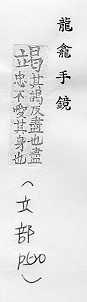 龍龕手鏡
竭
其謁反盡也盡
忠不愛其身也
(立部
p520)